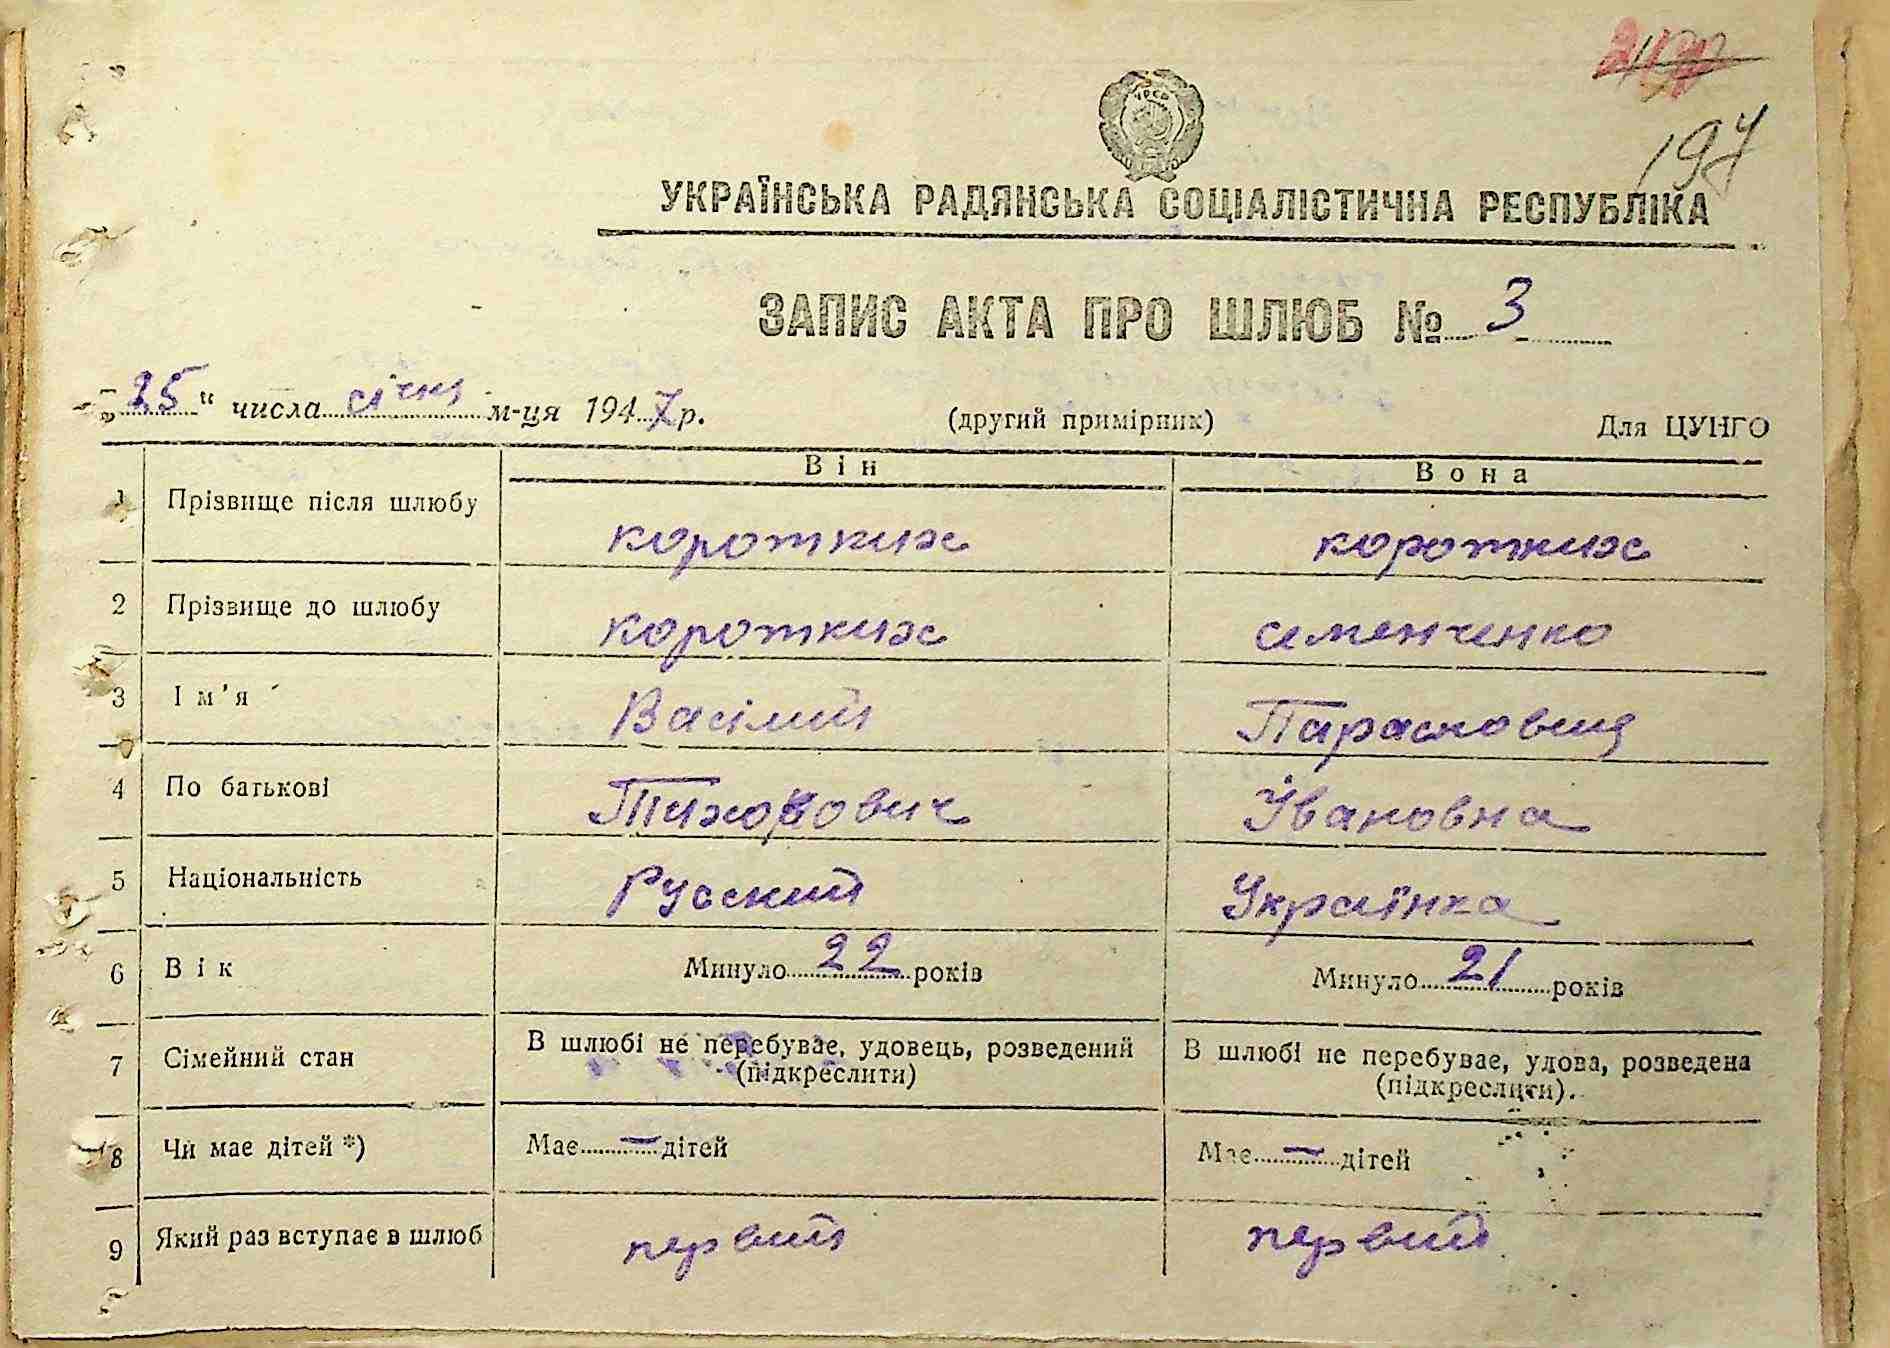 197
УРСР
УКРАЇНСЬКА РАДЯНСЬКА СОЦІАЛІСТИЧНА РЕСПУБЛІКА
ЗАПИС АКТА ПРО ШЛЮБ № 3
„25“ числа січня м-ця 1947 р. (другий примірник) Для ЦУНГО
Він Вона
1 Прізвище після шлюбу коротких коротких
2 Прізвище до шлюбу коротких семенченко
3 Ім'я Васілий Парасковия
4 По батькові Тихонович Івановна
5 Національність Руский Українка
6 Вік Минуло 22 років Минуло 21 років
7 Сімейний стан В шлюбі не перебуває, удовець, розведений В шлюбі не перебуває, удова, розведена
(підкреслити) (підкреслити).
8 Чи має дітей *) Має — дітей Має — дітей
9 Який раз вступає в шлюб первий первий